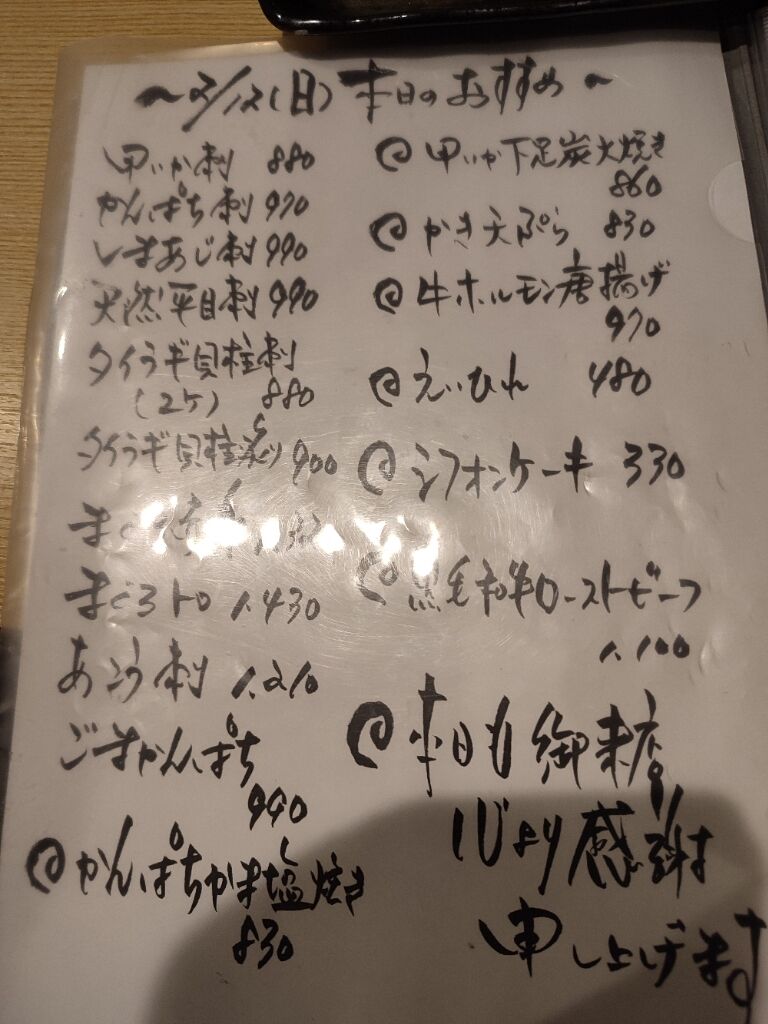 ～2/12(日)本日のおすすめ～
甲いか刺 880
かんぱち刺 970
しまあじ刺 990
天然平目刺 990
タイラギ貝柱刺
(2ケ) 880
タイラギ貝柱炙り 900
まぐろ
まぐろトロ 1,430
あこう刺 1,210
ごまかんぱち
990
かんぱちかま塩焼き
830
甲いか下足炭火焼き
860
かき天ぷら 830
牛ホルモン唐揚げ
970
えいひれ 480
シフォンケーキ 330
黒毛和牛ローストビーフ
1,100
本日も御来店
心より感謝
申し上げます